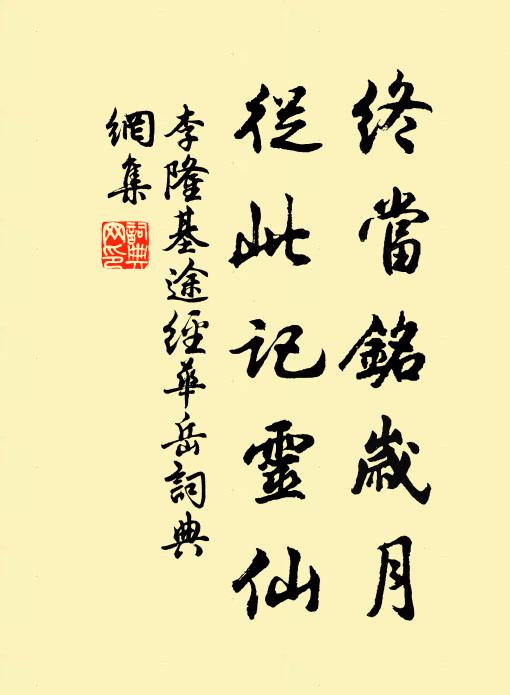 終當銘歲月
從此記靈仙
李隆基途經華岳詞典
網集
詞典
网印